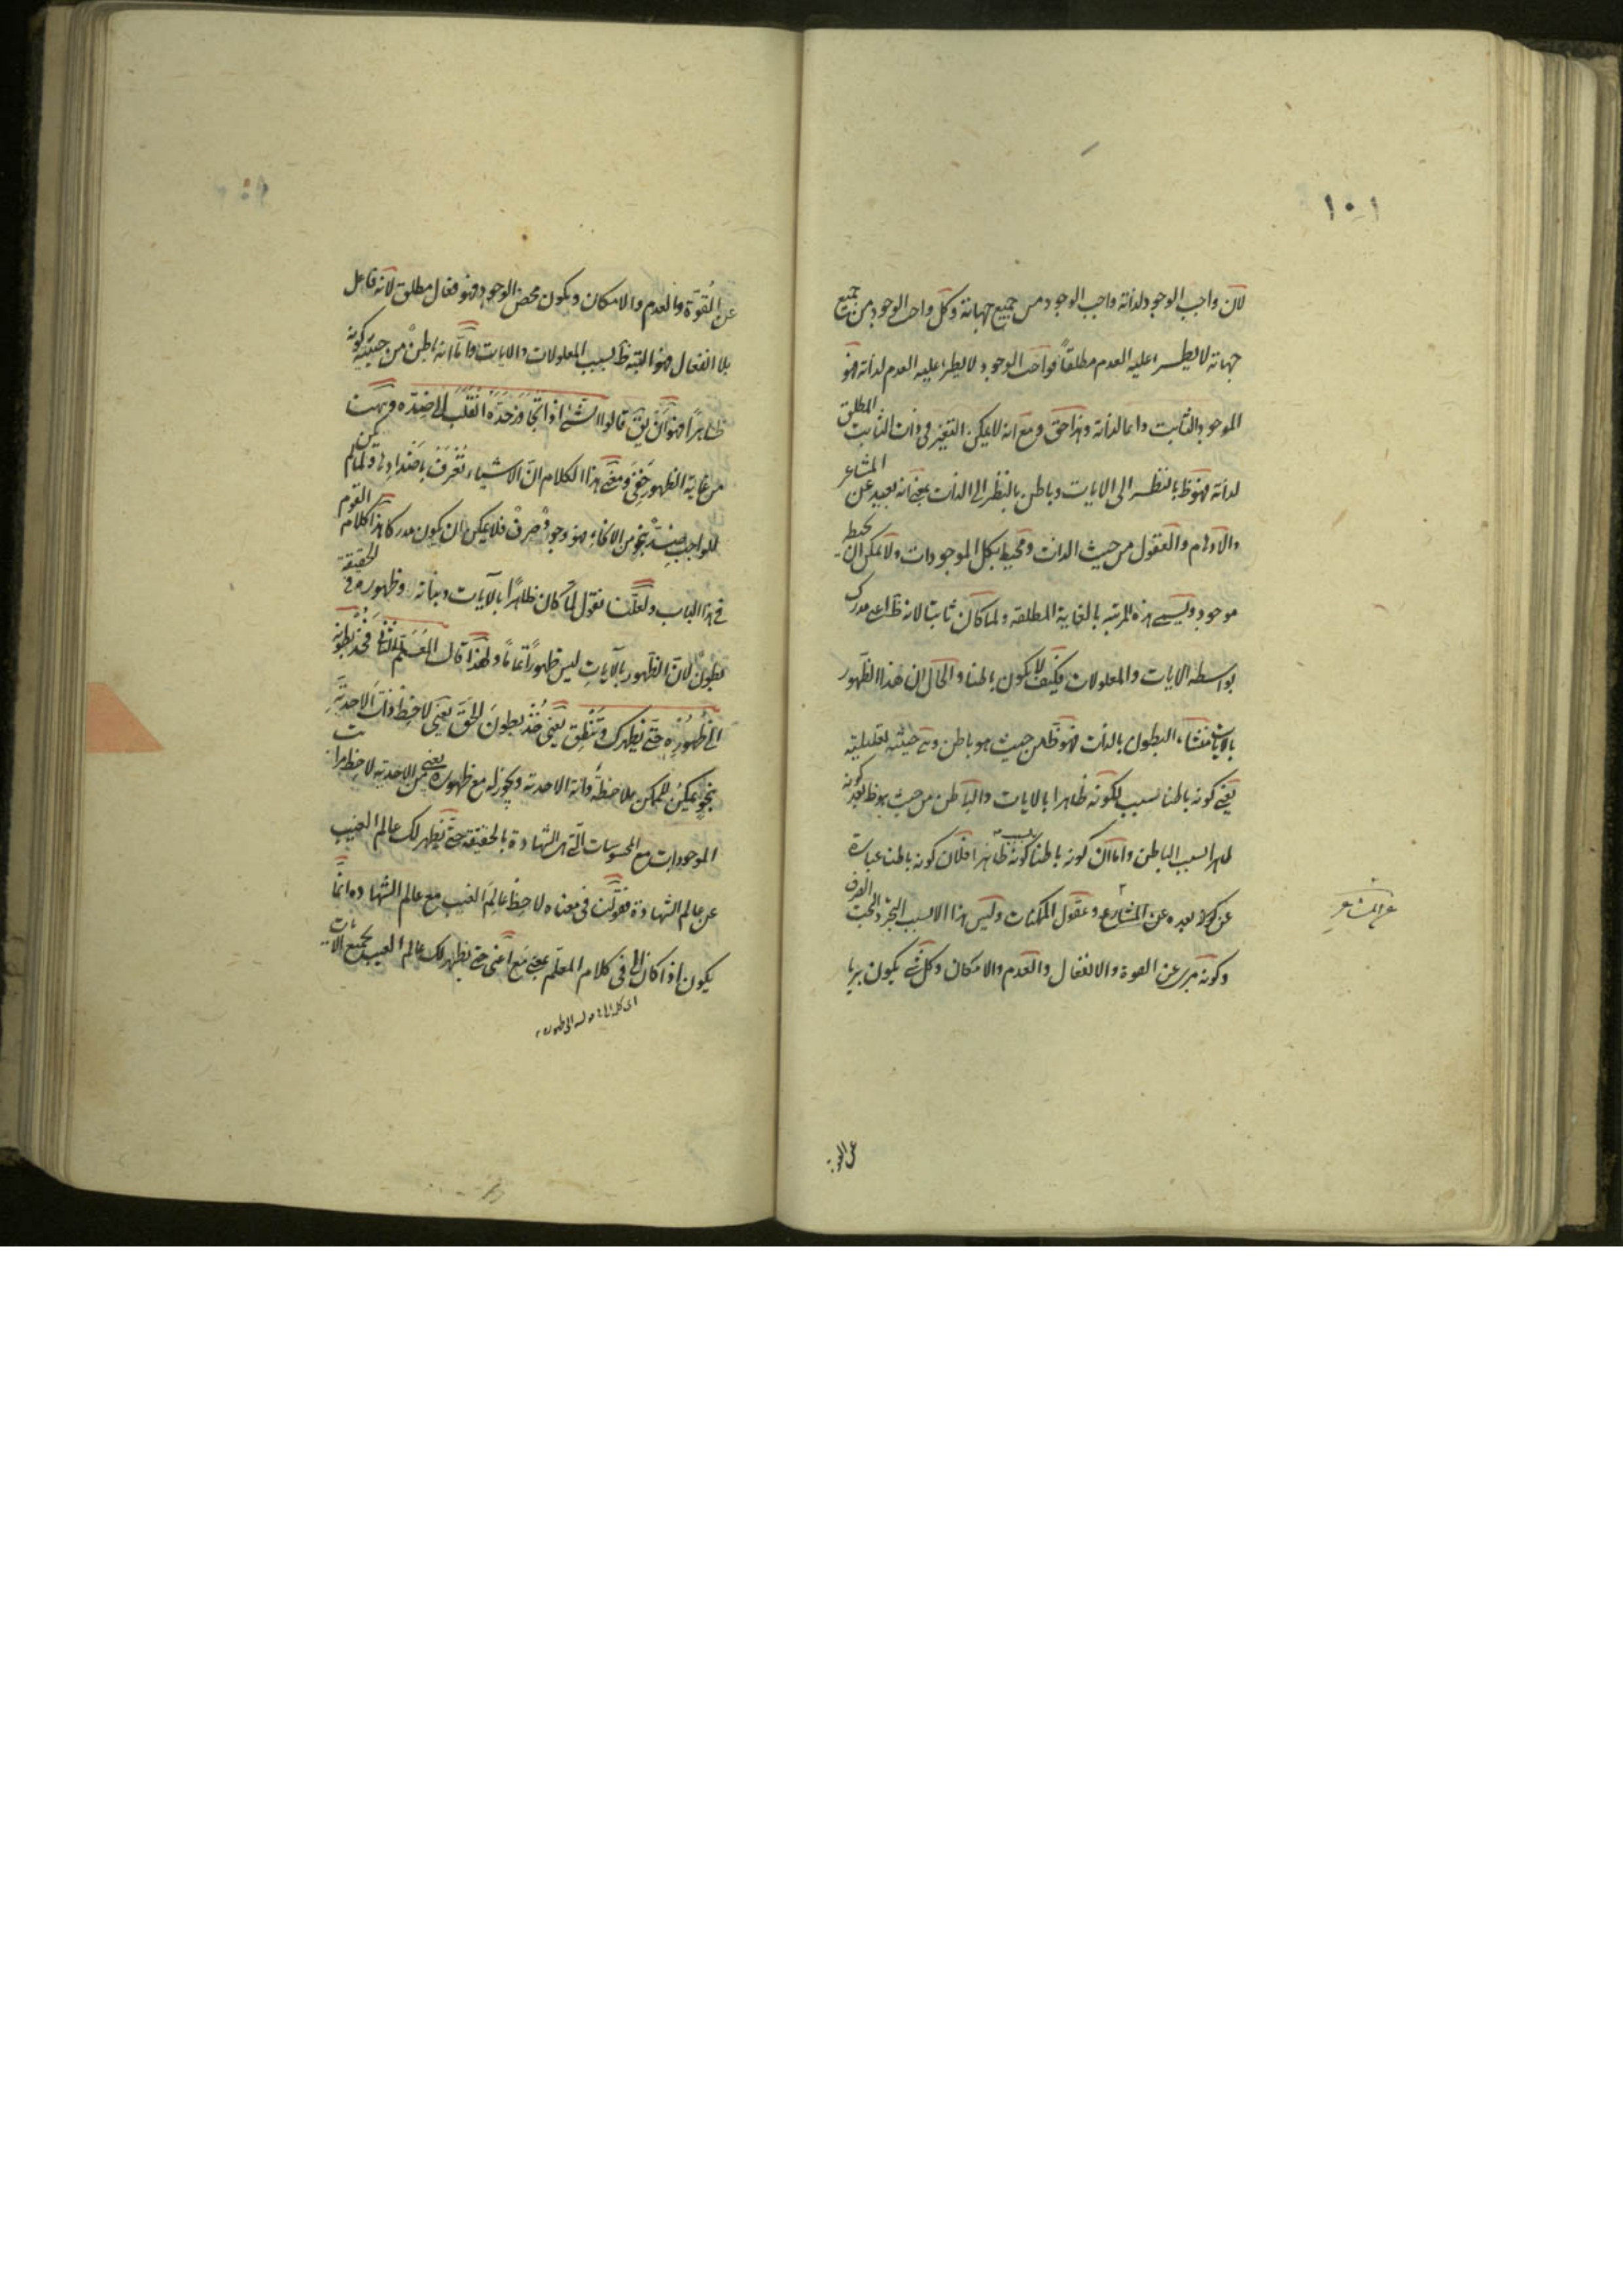 ١٠١
لان واجب الوجود لذاته واجب الوجود من جميع جهاته وكل واجب الوجود من جميع
جهاته لا يطرء عليه العدم مطلقاً فواجب الوجود لا يطرء عليه العدم لذاته فهو
الموجود الثابت دائما لذاته وهذا حق ومع انه لا يمكن التغير فى ذات الثابت المطلق
لذاته فهو ظ بالنظر الى الايات وباطن بالنظر الى الذات بمعنى انه بعيد عن المشاعر
والاوهام والعقول من حيث الذات ومحيط بكل الموجودات ولا يمكن ان يحيط
موجود ويسمى هذه المرتبة بالغاية المطلقه ولما كان ثابتا لانه ظ على مدرك
بواسطه الايات والمعلولات فكيف لا يكون باطنا والحال ان هذا الظهور
بالايات منشاء البطون بالذات فهو ظ من حيث هو باطن وهى حيثية تعليلية
يعنى كونه باطنا سبب لكونه ظاهرا بالايات والباطن من حيث هو ظ بعد كونه
ظاهرا لسبب الباطن واما ان كونه باطنا سبب كونه ظاهرا فلان كونه باطنا عبارة
عن كونه بعده عن المشارع وعقول الممكنات وليس هذا الا لسبب التجرد البحت الصرف
عن المشاعر
وكونه مبرى عن القوة والانفعال والعدم والامكان وكل شئ يكون بريا
عن القوة
عن القُوّة والعدم والامكان ويكون محض الوجود فهو فعال مطلق لانه فاعل
بلا انفعال فهو البته ظ بسبب المعلولات والايات وامّا انه باطنٌ من حيثيّة كونه
ظاهراً فهو انّ يقّ قالوا الشئ اذا تجاوز حَدَّه انقلب الى ضِدّه وهى هنا
من غاية الظهور خَفِىَ ومعنى هذا الكلام انّ الاشياء تُعْرَفُ باضدادها ولمّا لم يكن
للواجب ضِدٌّ بنحو من الانحاء فهو وجودٌ صِرفٌ فلا يمكن ان يكون مدركا هذا كلام القوم
فى هذا الباب ولعلّنا نقول لمّا كان ظاهرًا بالآيات وبياته وظهوره فى الحقيقة
بطونٌ لانّ الظهور بالآياتِ ليس ظهوراً تامًا ولهذا قال المعَلّم الثانى خُذْ بطونه
الى ظُهُوره حتى يظهر لك وتنطق يَعْنى خُذْ بطونَ الحقّ يَعنى لاحِظْ ذات الاحديّةِ
بنحوٍ يمكنُ للممكن ملاحظةُ ذاته الاحدية ويجوز له مع ظهوره يعنى من الاحدية لاحظ مراتب
الموجودات مع المحسوسات الّتى هى الشهادة بالحقيقة حتّى يظهر لك عالم الغيب
عن عالم الشهادة فقولنا فى معناه لاحِظْ عالَم الغيب مع عالم الشهادة انّما
يكون اذا كان الى فى كلام المعلّم بمعنى مع اعنى حتى يظهر لك عالم الغيب بجميع الآيات